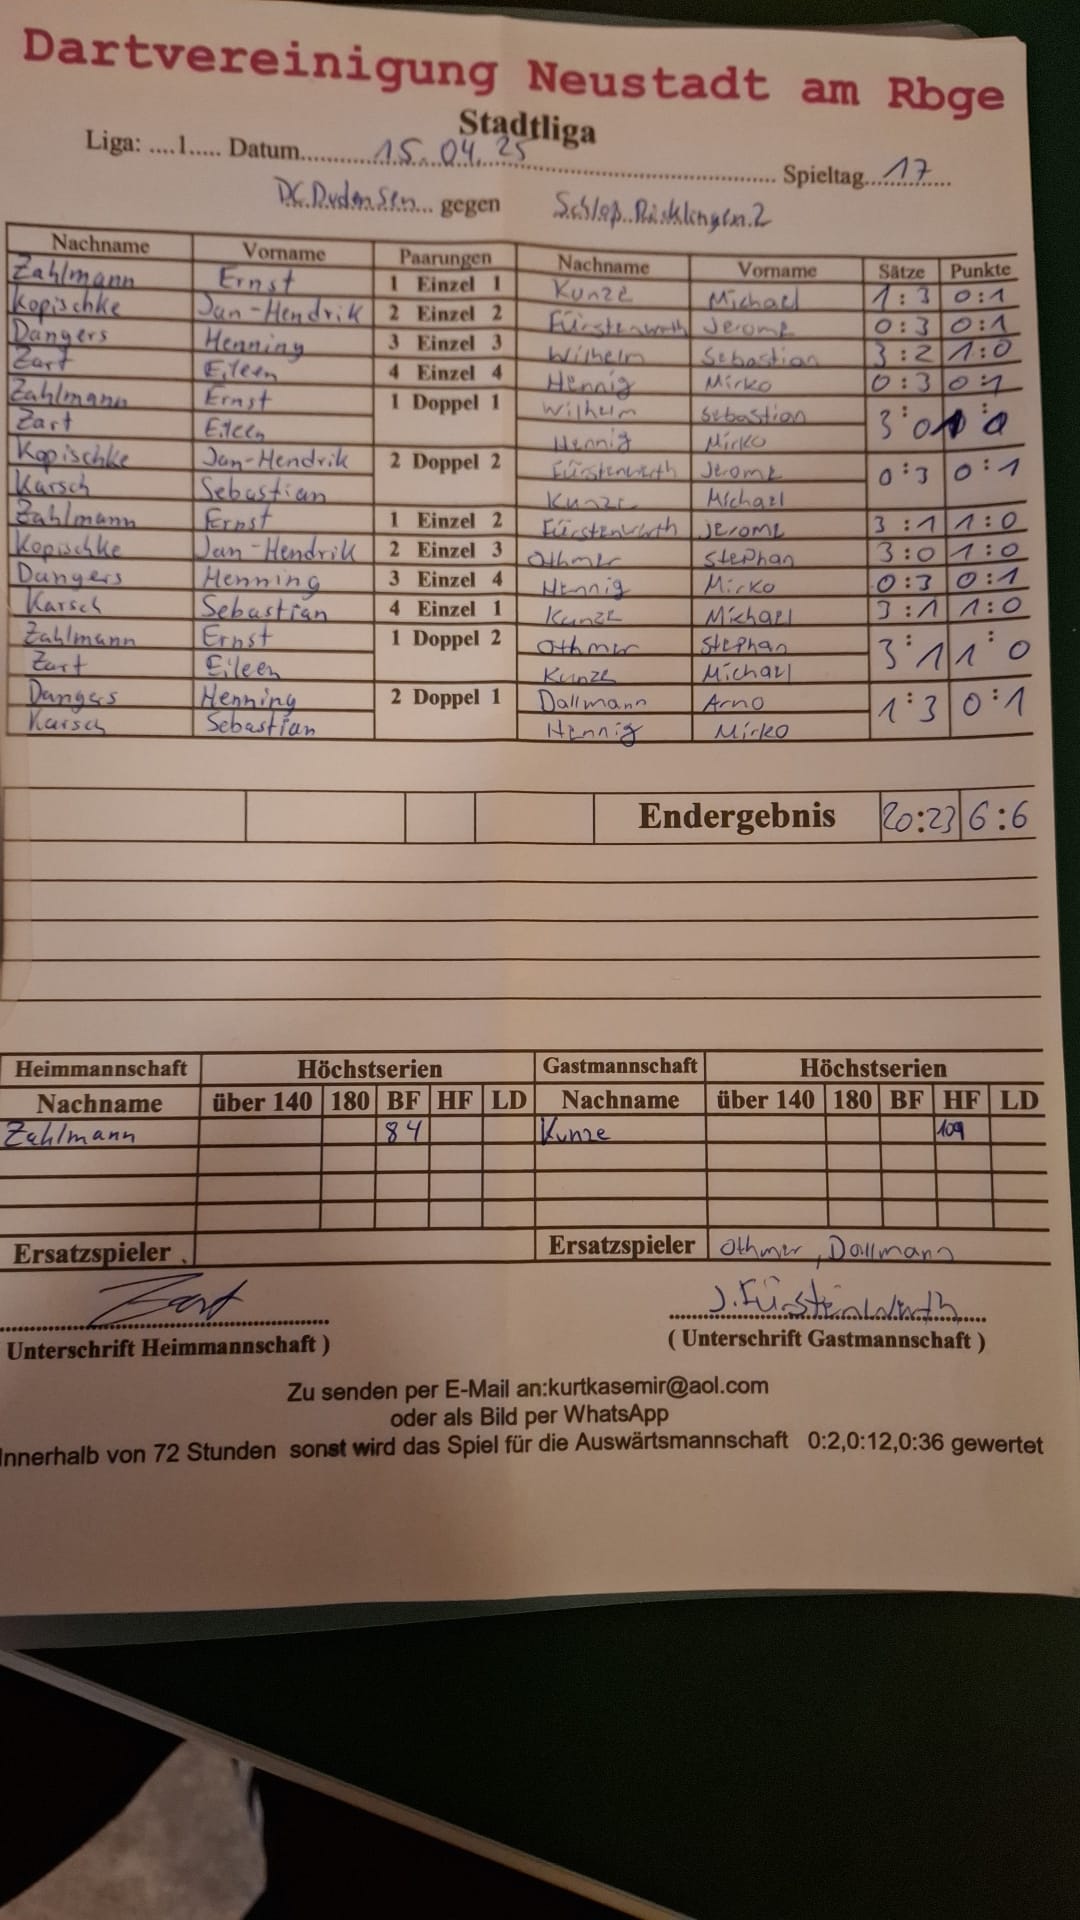 Dartvereinigung Neustadt am Rbge
Stadtliga
Liga: ....1..... Datum 15.04.25 Spieltag 17
DC.Dudensen gegen Schloß Ricklingen 2
Nachname Vorname Paarungen Nachname Vorname Sätze Punkte
Zahlmann Ernst 1 Einzel 1 Kunze Michael 1:3 0:1
Kopischke Jan-Hendrik 2 Einzel 2 Fürstenwerth Jerome 0:3 0:1
Dangers Henning 3 Einzel 3 Wilhelm Sebastian 3:2 1:0
Zart Eileen 4 Einzel 4 Hennig Mirko 0:3 0:1
Zahlmann Ernst 1 Doppel 1 Wilhelm Sebastian 3:0 1:0
Zart Eileen Hennig Mirko
Kopischke Jan-Hendrik 2 Doppel 2 Fürstenwerth Jerome 0:3 0:1
Karsch Sebastian Kunze Michael
Zahlmann Ernst 1 Einzel 2 Fürstenwerth Jerome 3:1 1:0
Kopischke Jan-Hendrik 2 Einzel 3 Othmer Stephan 3:0 1:0
Dangers Henning 3 Einzel 4 Hennig Mirko 0:3 0:1
Karsch Sebastian 4 Einzel 1 Kunze Michael 3:1 1:0
Zahlmann Ernst 1 Doppel 2 Othmer Stephan 3:1 1:0
Zart Eileen Kunze Michael
Dangers Henning 2 Doppel 1 Dallmann Arno 1:3 0:1
Karsch Sebastian Hennig Mirko
Endergebnis 20:23 6:6
Heimmannschaft Höchstserien Gastmannschaft Höchstserien
Nachname über 140 180 BF HF LD Nachname über 140 180 BF HF LD
Zahlmann 84 Kunze 109
Ersatzspieler Ersatzspieler Othmer, Dallmann
Zart J. Fürstenwerth
Unterschrift Heimmannschaft ) ( Unterschrift Gastmannschaft )
Zu senden per E-Mail an:kurtkasemir@aol.com
oder als Bild per WhatsApp
Innerhalb von 72 Stunden sonst wird das Spiel für die Auswärtsmannschaft 0:2,0:12,0:36 gewertet